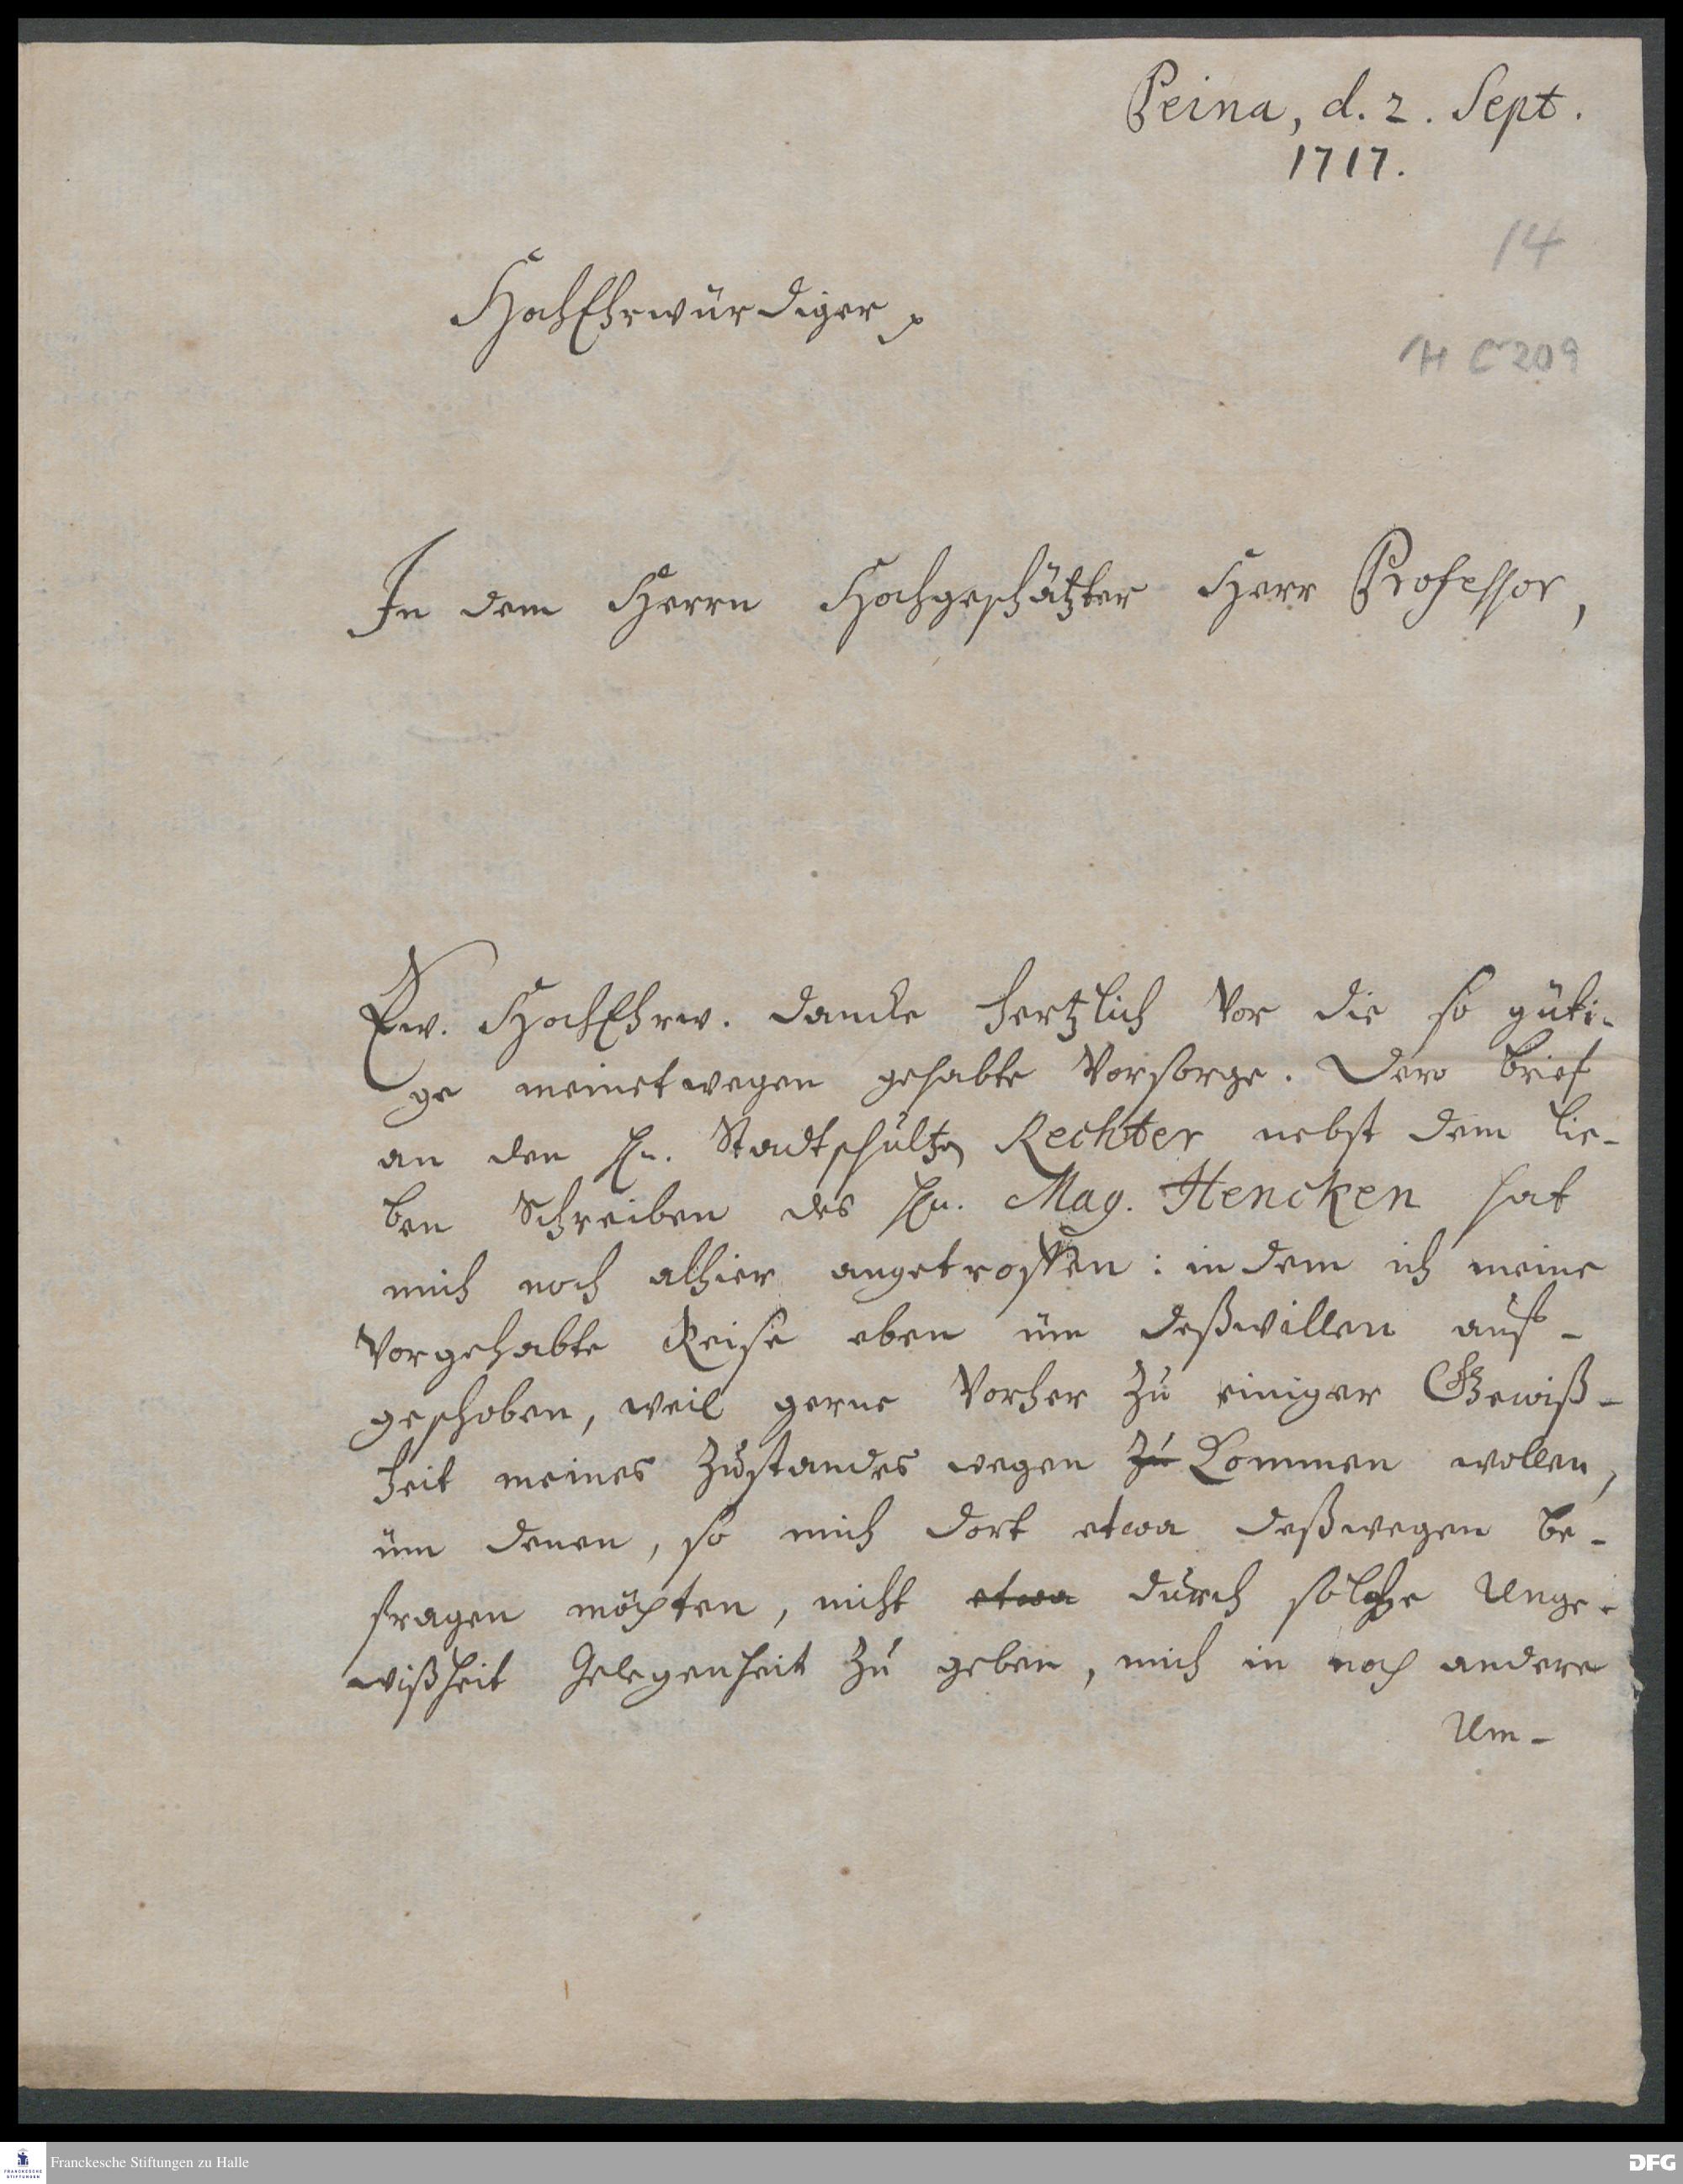 Peina, d. 2. Sept.
1717.
14
H C 209
HochEhrwürdiger
In dem Herrn Hochgeschätzter Herr Professor,
Ew. HochEhrw. dancke hertzlich vor die so güti-
ge meinetwegen gehabte Vorsorge. Dero brief
an den Hn. Stadtschultzen Rechter nebst dem lie-
ben Schreiben des Hn. Mag. Hencken hat
mich noch alhier angetroffen: indem ich meine
vorgehabte Reise eben üm deßwillen auf-
geschoben, weil gerne vorher zu einiger Gewiß-
heit meines Zustandes wegen zu kommen wollen,
üm denen, so mich dort etwa deßwegen be-
fragen möchten, nicht etwa durch solche Unge-
wißheit Gelegenheit zu geben, mich in noch andere
Um-
Franckesche Stiftungen zu Halle
FRANCKESCHE
STIFTUNGEN
DFG